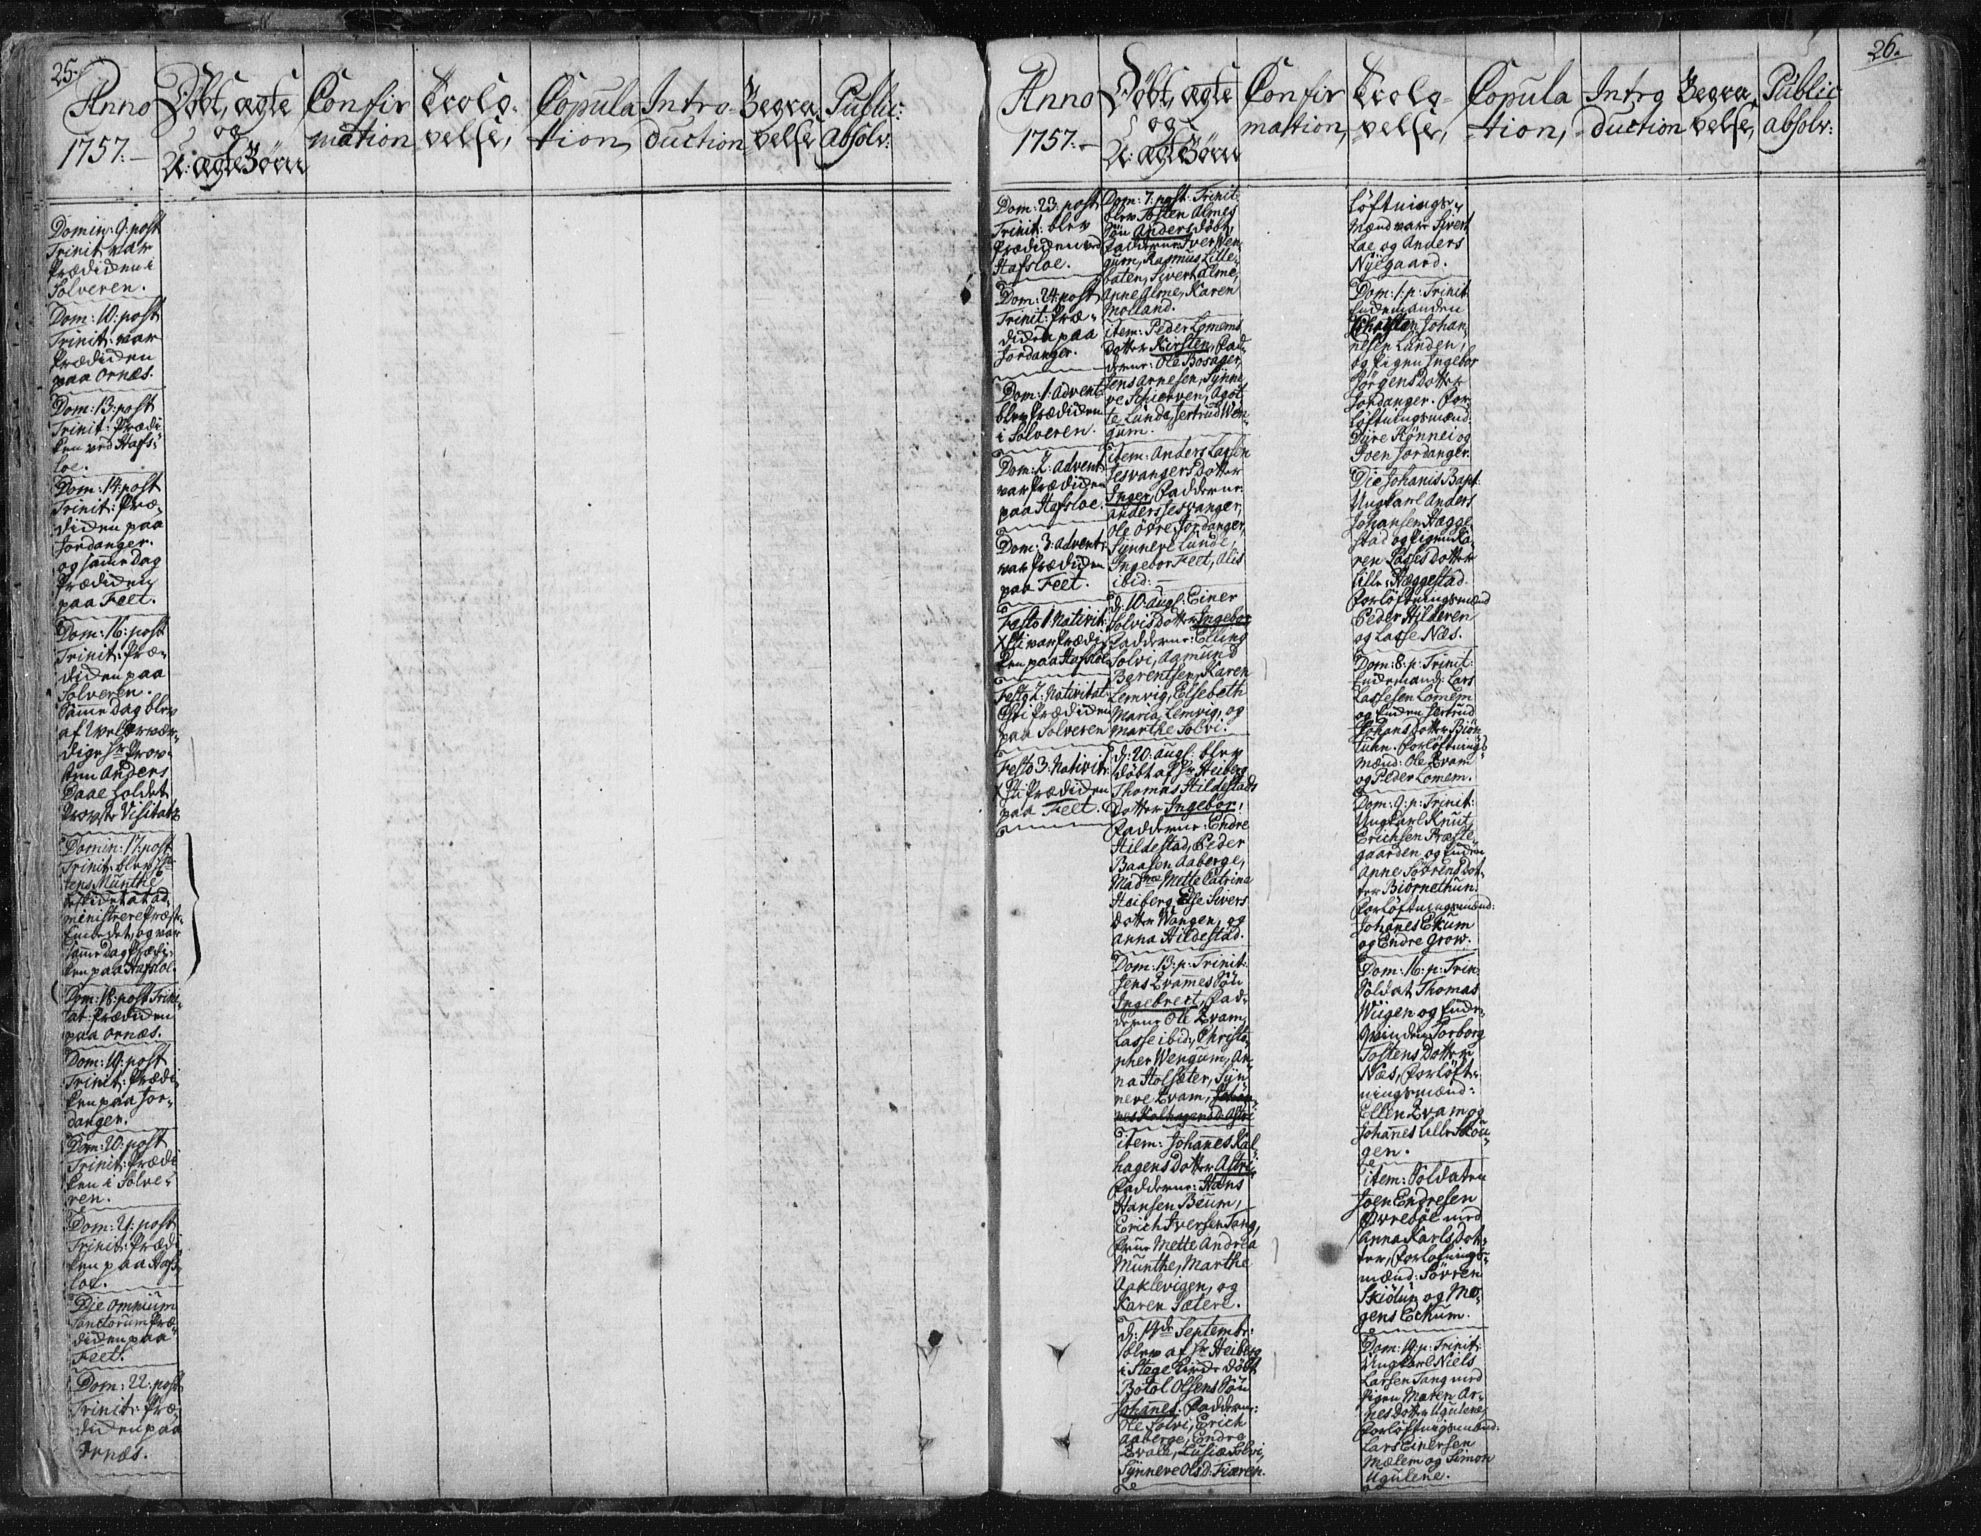 25.
Anno
1757.
Døbt, ægte
og
U: ægte Børn
Confir
mation
Trolo-
velse,
Copula
tion,
Intro-
duction
Begra-
velse
Public:
Absolv:
Domin: 9: post
Trinit var
Prædiken i
Solveren.
Dom: 10: post
Trinit: var
Prædiken
paa Ornæs.
Dom: 13: post
Trinit: Prædi
ken ved Hafs-
loe.
Dom: 14: post
Trinit: Præ-
diken paa
Jordanger.
og samme dag
Prædiken
paa Feet.
Dom: 16: post
Trinit: Præ-
diken paa
Solveren.
Samme dag blev
af Velærvær-
dige Hr Prov-
sten Anders
Daae holdet
Provste Visitatz
Domin: 17: post
Trinit: blev Hr
Jens Munthe
beskidet at ad
ministrere Præste
Embedet, og var
samme dag Prædi-
ken paa Hafsloe.
Dom: 18: post Trini-
at: Prædiken
paa Ornæs.
Dom: 19: post
Trinit: Prædi
ken paa Jor-
danger.
Dom: 20: post
Trinit: Prædi
ken i Solve-
ren.
Dom: 21: post
Trinit: Prædi
ken paa Hafs-
loe.
Die omnium
Sanctorum Præ-
diken paa
Feet.
Dom: 22: post
Trinit: Præ-
diken paa
Ornæs.
26.
Anno
1757.
Døbt, ægte
og
U: ægte Børn
Confir
mation,
Trolo-
velse,
Copula
tion,
Intro
duction
Begra-
velse,
Public
absolv:
Dom: 23: post
Trinit: blev
Prædiken ved
Hafsloe.
Dom: 24: post
Trinit: Præ-
diken paa
Jordanger.
Dom: 1: Advent:
blev Prædiken
i Solveren.
Dom: 2: Advent:
var Prædiken
paa Hafsloe.
Dom: 3: Advent:
var Prædiken
paa Feet.
Festo 1 Nativit:
Xsti var Prædi-
ken paa Hafsloe
Festo 2: Nativitat:
Xsti Prædiken
paa Solveren
Festo 3: Nativit:
Xsti Prædiken
paa Feet.
Dom: 7: post: Trinit:
blev Tosten Almes
Søn Anders, døbt,
Fadderne: Iver Wen-
gum, Rasmus Lille-
baten, Sivert Alme,
Anne Alme, Karen
Molland.
item: Peder Lomems
Dotter Kirsten, Fad-
derne: Ole Bosager,
Jens Arnesen, Synne
ve Schierven, Agot-
te Lunde, Jertrud Wen-
gum.
item: Anders Larsen
Jesvangers Dotter
Inger, Fadderne:
Anders Jesvanger,
Ole Øvre Jordanger,
Synneve Lunde,
Ingebor Feet, Alis
ibid:
d: 10: aug: Einer
Solvis Dotter Ingebor
Fadderne: Elling
Solvi, Aamund
Berentsen, Karen
Lemvig, Elsebeth
Maria Lemvig, og
Marthe Solvi.
d: 20: aug: blev
døbt af Hr Heiberg
Thomas Hildestads
Dotter Ingebor,
Fadderne: Endre
Hildestad, Peder
Baasen Aaberge,
Madme Mette Catrine
Heiberg, Else Sivers
Dotter Wangen, og
Anna Hildestad.
Dom: 13: p: Trinit:
Jens Kvames Søn
Ingebrect, Fad-
derne Ole Kvam,
Lasse ibid:, Christo-
pher Wengum, An-
na Holsæter, Syn-
neve Kvam,
item: Johannes Kal-
hagens Dotter Astri
Fadderne: Hans
Hansen Beum,
Erich Iversen Tang,
Frue Mette Andrea
Munthe, Marthe
Aaklevigen, og
Karen Sætere.
d: 14de Septembr:
blev af Hr Heiberg
i Stege Kirke døbt
Botol Olsens Søn
Johannes. Fadderne:
Ole Solvi, Erich
Aaberge, Endre
Kvale, Lusiæ Solvi,
Synneve Olsd: Fiæren.
løftnings-
Mænd vare Sivert
Lae og Anders
Nyegaard.
Dom: 1: p: Trinit
Enkemanden
Christen Johan
nesen Lunden,
og Pigen Ingebor
Jørgens Dotter
Jordanger. For-
løftningsmænd
Dyre Rønnei og
Joen Jordanger.
Die Johanis Bapt:
Ungkarl Anders
Johansen Hægge-
stad og Pigen Ka-
ren Lasses Dotter
Lille Hæggestad.
Forløftningsmænd
Peder Hilderen
og Lasse Næs.
Dom: 8: p: Trinit:
Enkemand: Lars
Lassesen Lomem
og Enken Jertrud
Johans Dotter Biør-
tuhn. Forløftnings
mænd: Ole Kvam
og Peder Lomem.
Dom: 9: p: Trinit:
Ungkarl Knut
Erichsen Præste-
gaarden og Enken
Anne Sørens Dot-
ter Biørnethun.
Forløftningsmænd:
Johanes Ekum
og Endre Grow.
Dom: 16: p: Trin:
Soldat Thomas
Wiigen og Enke-
qvinden Torborg
Tostens Dotter
Næs, Forløft-
ningsmænd:
Ellen Kvam og
Johannes Ulle Skou-
gen.
item: Soldaten
Joen Endresen
Øvrebøe med
Anna Karls Dot-
ter, Forløfnings-
mænd: Søvren
Skiølup og Mo-
gens Eckum.
Dom: 19: p: Trinit:
Ungkarl Niels
Larsen Tang med
Pigen Maren Ar-
nes Dotter Ugulene,
Forløftningsmænd:
Lars Einersen
Mælem og Simon
Ugulene.